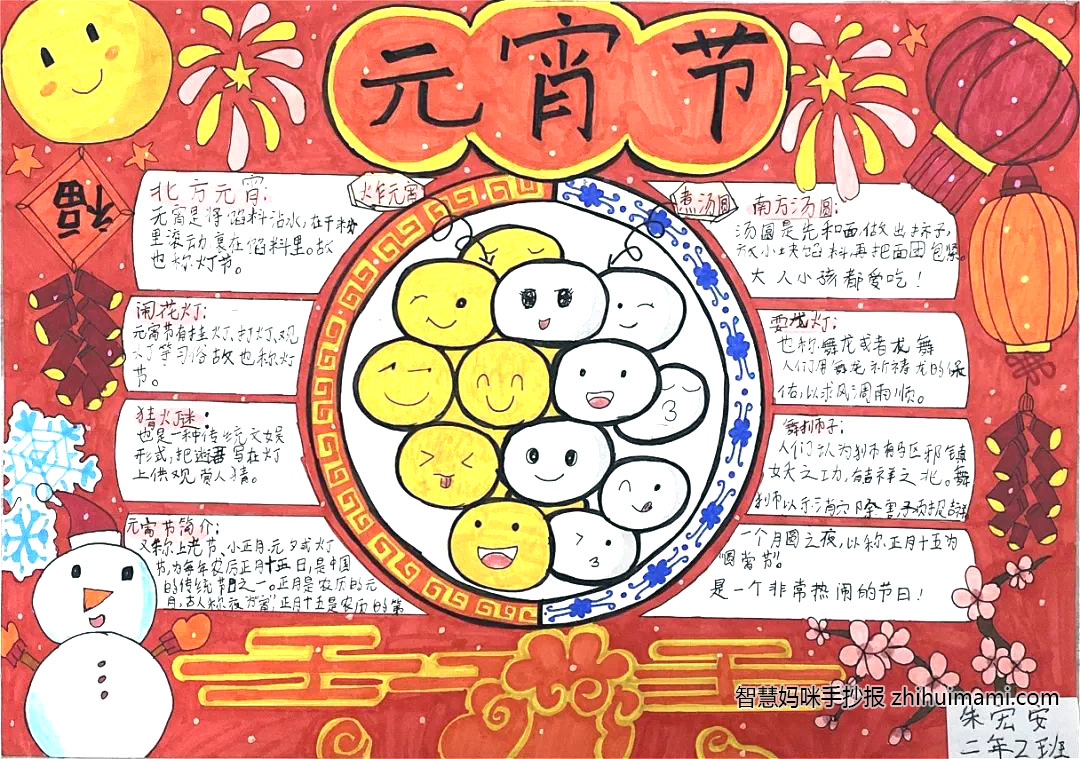 元宵节
福
北方元宵:
元宵是将馅料沾水,在干粉
里滚动裹在馅料里。故
也称灯节。
炸元宵
煮汤圆
南方汤圆:
汤圆是先和面做出
放小块馅料再把面团包紧。
大人小孩都爱吃!
闹花灯:
元宵节有挂灯、打灯、观
灯等习俗故也称灯
节。
耍龙灯:
也称舞龙或者龙舞
人们用舞龙祈祷龙的保
佑,以求风调雨顺。
猜灯谜:
也是一种传统文娱
形式,把谜语写在灯
上供观赏人猜。
舞狮子:
人们认为狮
之功,吉祥之
元宵节简介:
又称上元节、小正月、元夕或灯
节,为每年农历正月十五日,是中国
的传统节日之一。正月是农历的元
月,古人称夜为"宵",正月十五是农历的第
一个月圆之夜,以称正月十五为
"元宵节"。
是一个非常热闹的节日!
智慧妈咪手抄报 zhihuimami.com
朱宏安
二年2班